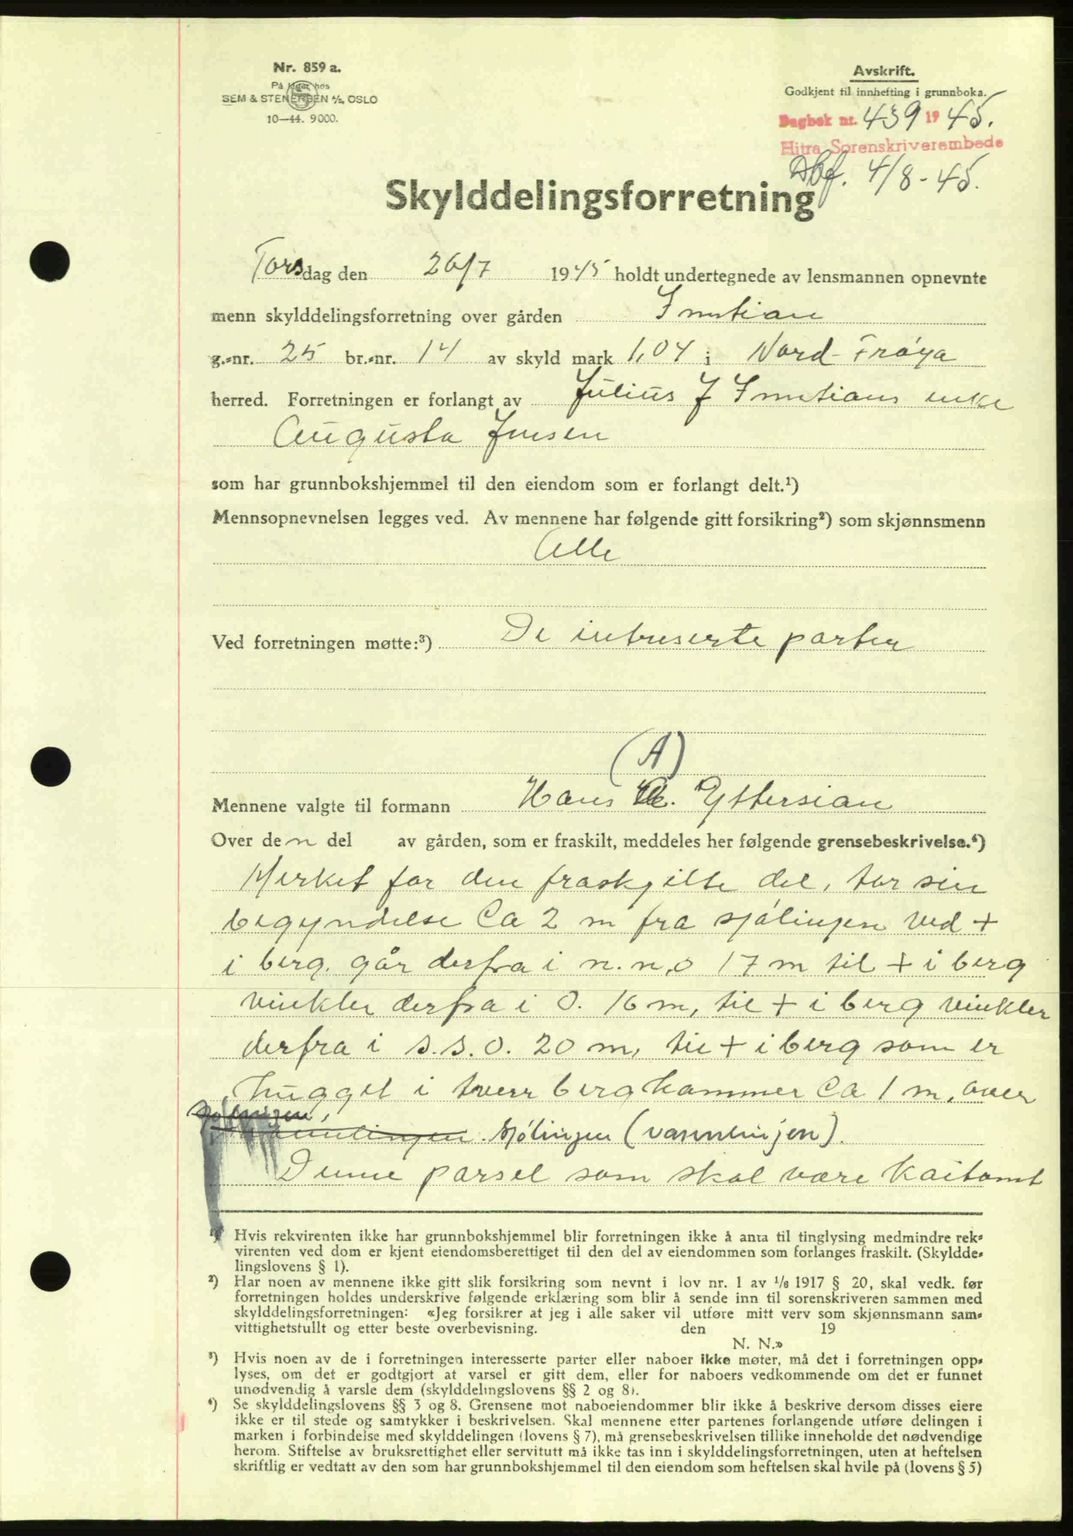 Nr. 859 a.
På lager hos
SEM & STENERSEN A/S, OSLO
10—44. 9000.
Avskrift.
Godkjent til innhefting i grunnboka.
Dagbok nr. 439 1945.
Hitra Sorenskriverembede
Dbf. 4/8-45.
Skylddelingsforretning
Torsdag den 26/7 1945 holdt undertegnede av lensmannen opnevnte
menn skylddelingsforretning over gården Inntian
g.-nr. 25 br.-nr. 14 av skyld mark 1,04 i Nord-Frøya
herred. Forretningen er forlangt av Julius J Inntians enke
Augusta Jensen
som har grunnbokshjemmel til den eiendom som er forlangt delt.¹)
Mennsopnevnelsen legges ved. Av mennene har følgende gitt forsikring²) som skjønnsmenn
Alle
Ved forretningen møtte:³) De intreserte parter
(A)
Mennene valgte til formann Hans Yttersian
Over den del av gården, som er fraskilt, meddeles her følgende grensebeskrivelse.⁴)
Merket for den fraskjilte del, tar sin
begyndelse Ca 2 m fra sjølinjen ved +
i berg. går derfra i n.n.o 17 m til + i berg
vinkler derfra i O. 16 m, til + i berg vinkler
derfra i s.s.o. 20 m, til + i berg som er
hugget i tverr berghammer Ca 1 m, over
sjølinjen (vannlinjen).
Denne parsel som skal være kaitomt
¹) Hvis rekvirenten ikke har grunnbokshjemmel blir forretningen ikke å anta til tinglysing medmindre rek-
virenten ved dom er kjent eiendomsberettiget til den del av eiendommen som forlanges fraskilt. (Skyldde-
lingslovens § 1).
²) Har noen av mennene ikke gitt slik forsikring som nevnt i lov nr. 1 av 1/8 1917 § 20, skal vedk. før
forretningen holdes underskrive følgende erklæring som blir å sende inn til sorenskriveren sammen med
skylddelingsforretningen: «Jeg forsikrer at jeg i alle saker vil utføre mitt verv som skjønnsmann sam-
vittighetsfullt og etter beste overbevisning. den 19
N. N.»
³) Hvis noen av de i forretningen interesserte parter eller naboer ikke møter, må det i forretningen opp-
lyses, om det er godtgjort at varsel er gitt dem, eller for naboers vedkommende om det er funnet
unødvendig å varsle dem (skylddelingslovens §§ 2 og 8).
⁴) Se skylddelingslovens §§ 3 og 8. Grensene mot naboeiendommer blir ikke å beskrive dersom disses eiere
ikke er til stede og samtykker i beskrivelsen. Skal mennene etter partenes forlangende utføre delingen i
marken i forbindelse med skylddelingen (lovens § 7), må grensebeskrivelsen tillike inneholde det nødvendige
herom. Stiftelse av bruksrettighet eller servitutt må ikke tas inn i skylddelingsforretningen, uten at heftelsen
skriftlig er vedtatt av den som har grunnbokshjemmel til den eiendom som heftelsen skal hvile på (lovens § 5)